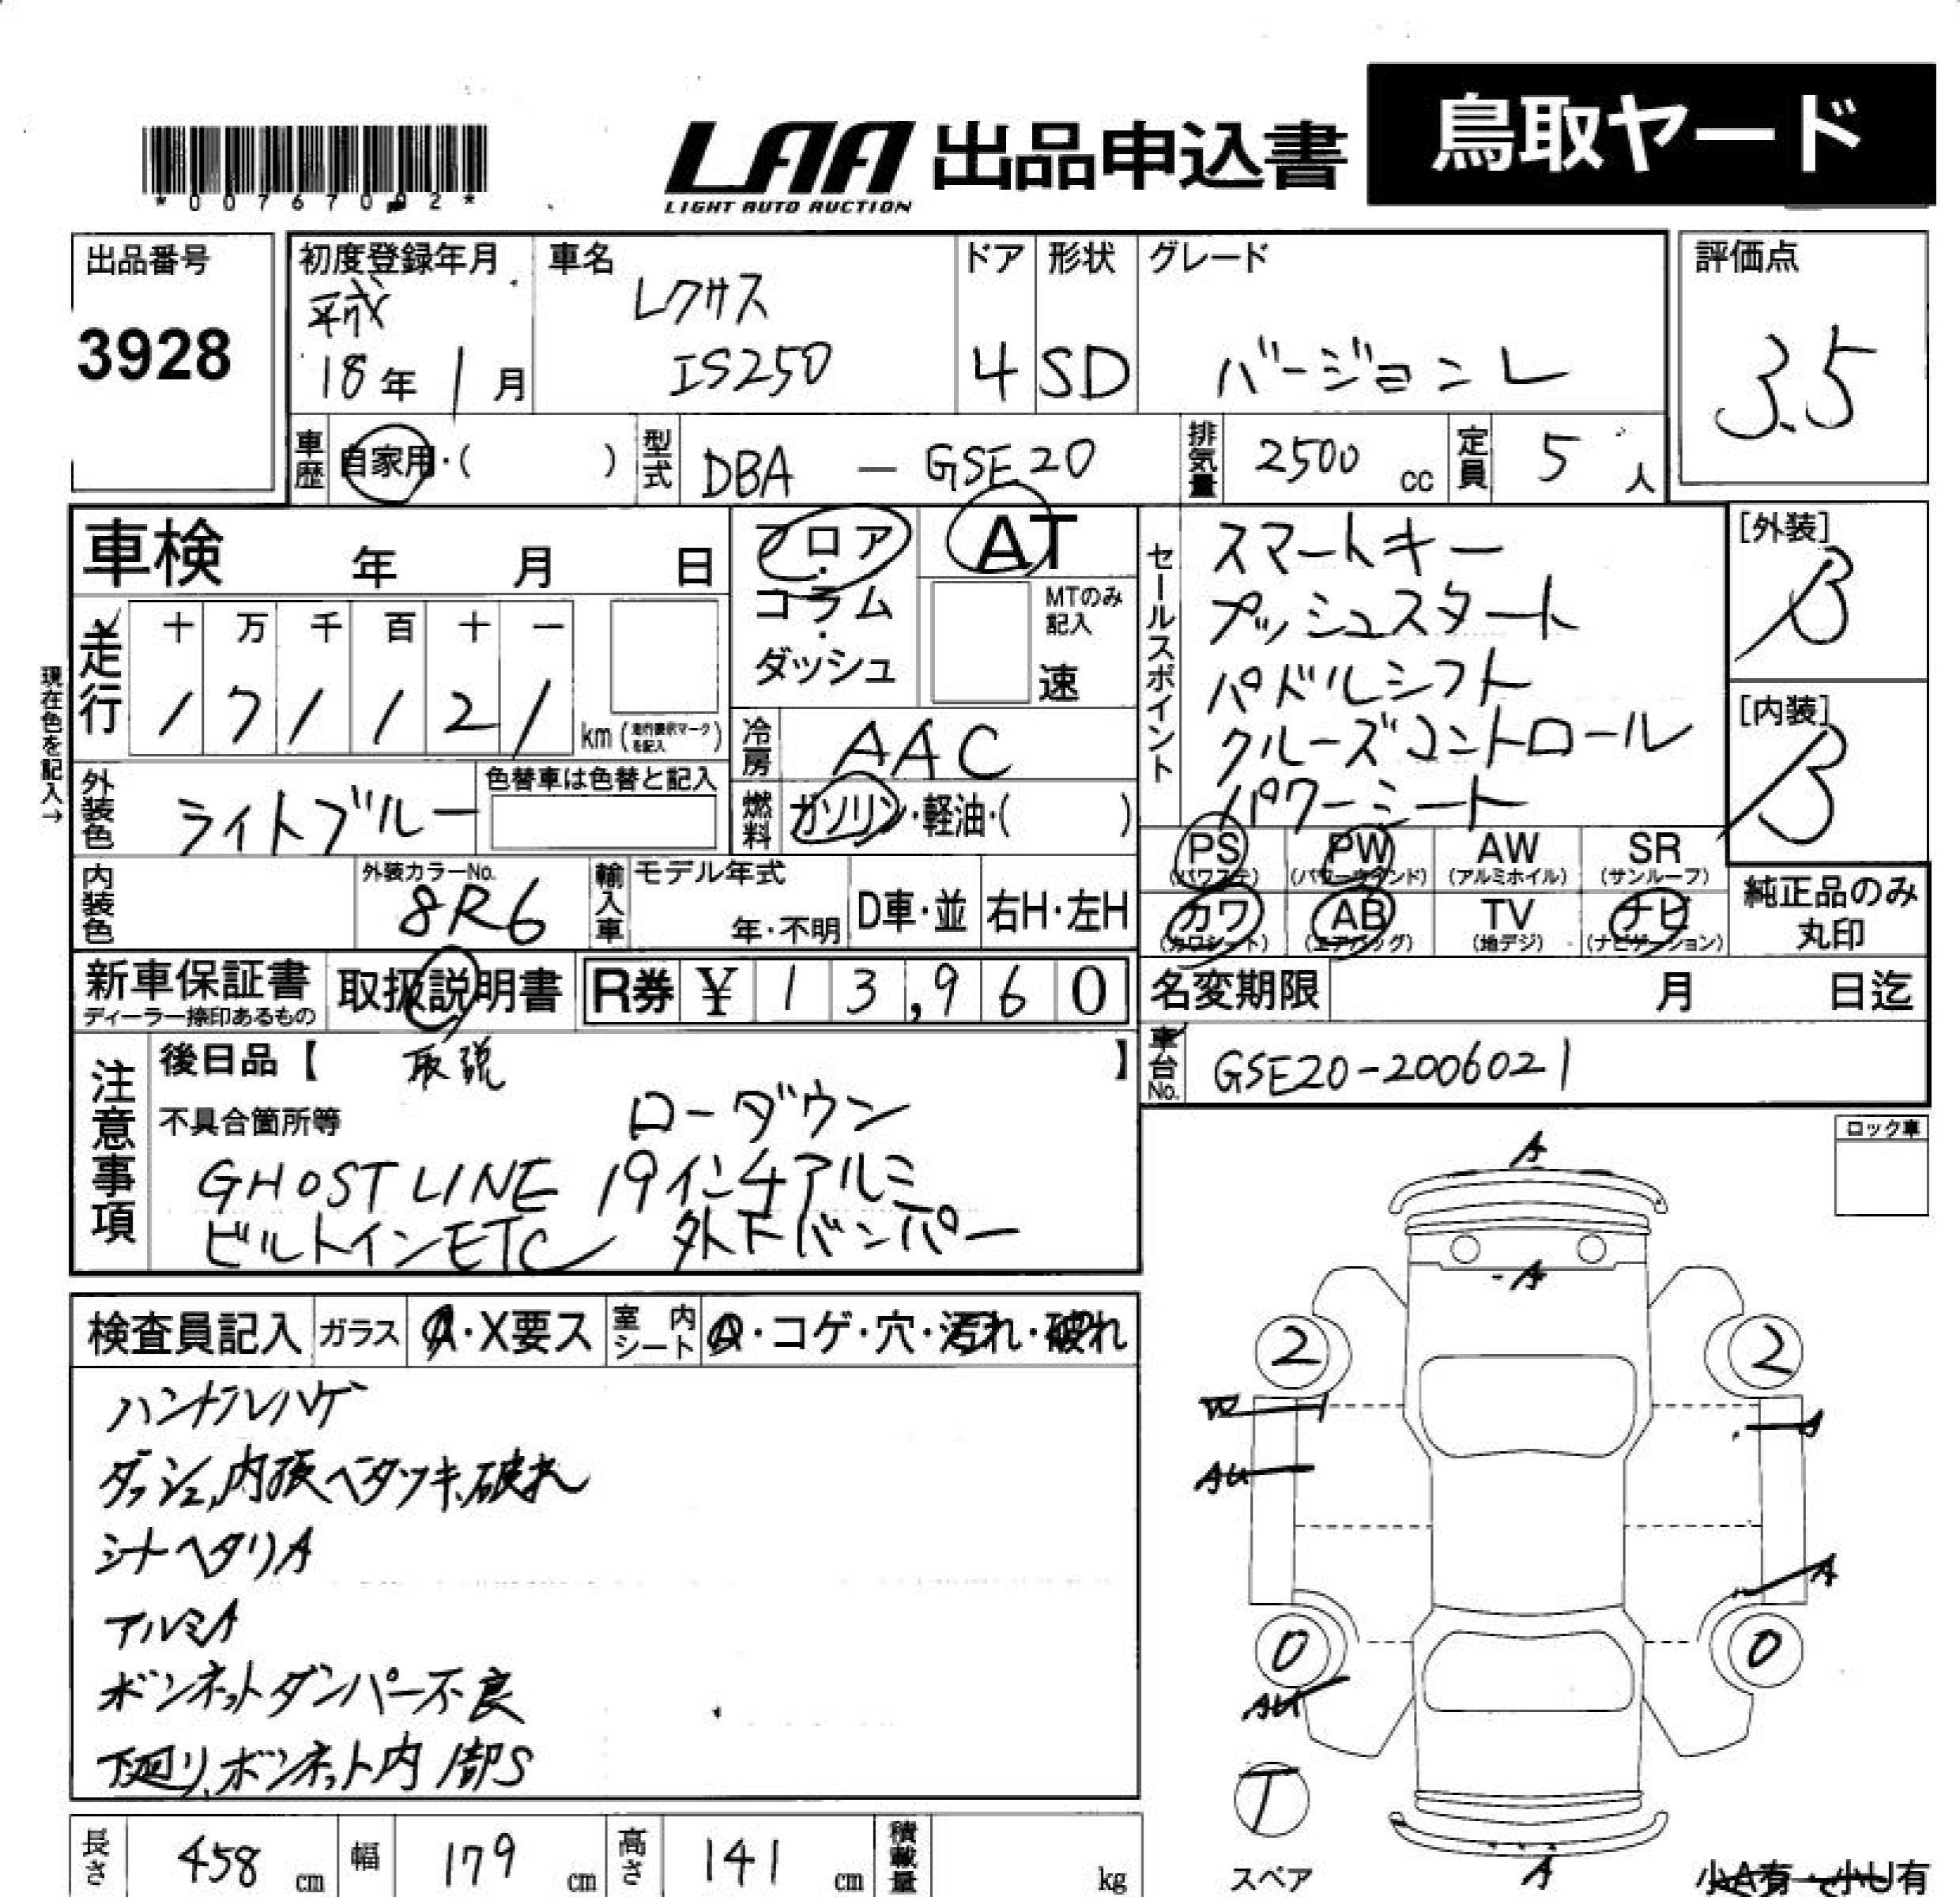 *00767002*
LAA 出品申込書 鳥取ヤード
LIGHT AUTO AUCTION
出品番号
3928
初度登録年月
平成
18年 1月
車名
レクサス
IS250
ドア
4
形状
SD
グレード
バージョンL
評価点
3.5
車歴 自家用・( )
型式 DBA - GSE20
排気量 2500 cc
定員 5 人
車検 年 月 日
フロア・コラム・ダッシュ
AT
MTのみ記入
速
セールスポイント
スマートキー
プッシュスタート
パドルシフト
クルーズコントロール
パワーシート
[外装]
B
[内装]
B
現在色を記入→
走行
十 万 千 百 十 一
1 7 1 1 2 1
km (走行表示マークを記入)
冷房 AAC
燃料 ガソリン・軽油・( )
外装色 ライトブルー
色替車は色替と記入
内装色
外装カラーNo.
8R6
輸入車
モデル年式
年・不明
D車・並
右H・左H
PS (パワステ)
PW (パワーウィンド)
AW (アルミホイル)
SR (サンルーフ)
カワ (カワシート)
AB (エアバッグ)
TV (地デジ)
ナビ (ナビゲーション)
純正品のみ
丸印
新車保証書
ディーラー捺印あるもの
取扱説明書
R券 ¥ 13,960
名変期限 月 日迄
車台No. GSE20-2006021
注意事項
後日品【 取説 】
不具合箇所等 ローダウン
GHOST LINE 19インチアルミ
ビルトインETC 外下バンパー
ロック車
検査員記入
ガラス A・X要ス
室内シート A・コゲ・穴・汚れ・破れ
ハンドルハゲ
ダッシュ,内張ベタツキ、破れ
シートヘタリA
アルミA
ボンネットダンパー不良
下廻り、ボンネット内部S
A
A
2 2
A
AU
A
0 0
AU
T
スペア
A
小A有・小U有
長さ 458 cm
幅 179 cm
高さ 141 cm
積載量 kg